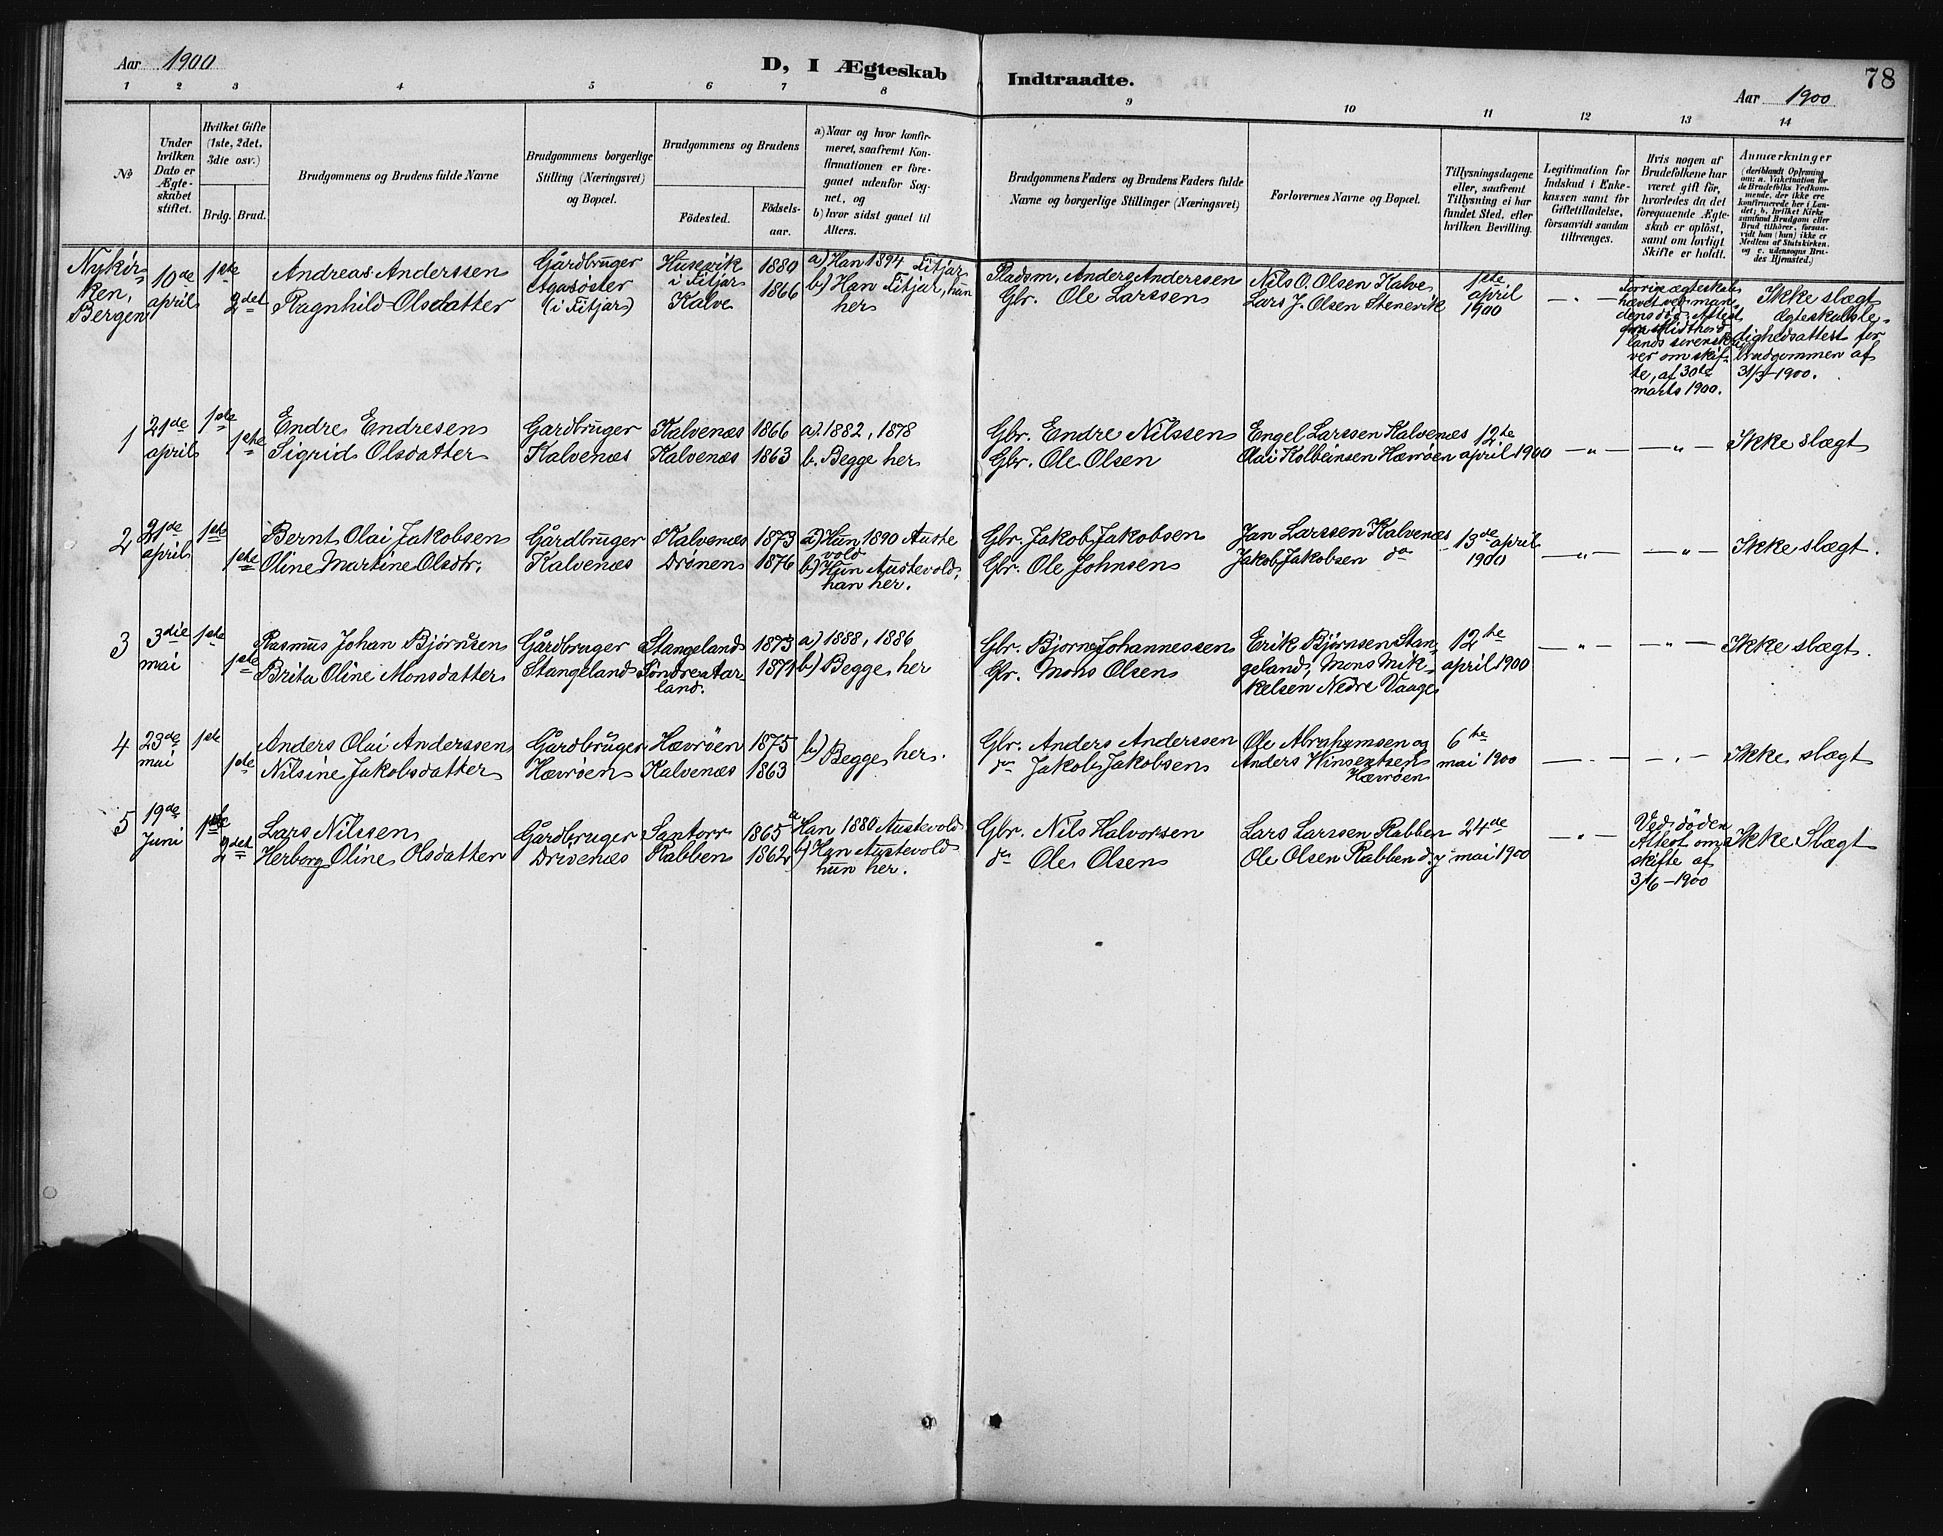 Aar 1900
D, I Ægteskab Indtraadte.
78
Aar 1900
1 2 3 4 5 6 7 8 9 10 11 12 13 14
No
Under hvilken Dato er Ægte-skabet stiftet.
Hvilket Gifte (1ste, 2det, 3die osv.)
Brdg. Brud.
Brudgommens og Brudens fulde Navne
Brudgommens borgerlige Stilling (Næringsvei) og Bopæl.
Brudgommens og Brudens
Födested.
Födsels-aar.
a) Naar og hvor konfir-meret, saafremt Kon-firmationen er fore-gaaet udenfor Sog-net, og
b) hvor sidst gaaet til Alters.
Brudgommens Faders og Brudens Faders fulde Navne og borgerlige Stillinger (Næringsvei)
Forlovernes Navne og Bopæl.
Tillysningsdagene eller, saafremt Tillysning ei har fundet Sted, efter hvilken Bevilling.
Legitimation for Indskud i Enke-kassen samt for Giftetilladelse, forsaavidt saadan tiltrænges.
Hvis nogen af Brudefolkene har været gift för, hvorledes da det foregaaende Ægte-skab er oplöst, samt om lovligt Skifte er holdt.
Anmærkninger
(deriblandt Oplysning om: a. Vakcination for de Brudefolks Vedkom-mende, der ikke ere konfirmerede her i Lan-det; b. hvilket Kirke-samfund Brudgom eller Brud tilhörer, forsaa-vidt han (hun) ikke er Medlem af Statskirken. og c. udensogns Bru-des Hjemsted.)
Nykir-ken, Bergen
10de april
1ste
2det
Andreas Anderssen
Ragnhild Olsdatter
Gårdbruger
Agasöster
(i Fitjar)
Husevik i Fitjar
Kalve
1880
1866
a) Han 1894 Fitjar
b) Han Fitjar, hun her
Pladsm. Anders Anderssen
Gbr. Ole Larssen
Nils O. Olsen Kalve
Lars J. Olsen Stenevik
1ste april 1900
— " —
Forrige ægteskab hævet ved man-dens död. Attest fra Midthord-lands sorenskri-ver om skif-te, af 30te marts 1900.
Ikke slægt
Ægteskabsle-dighedsattest for Brudgommen af
31/3 1900.
1
21de april
1ste
1ste
Endre Endresen
Sigrid Olsdatter
Gardbruger
Kalvenæs
Kalvenæs
Kalvenæs
1866
1863
a) 1882, 1878
b. Begge her
Gbr. Endre Nilssen
Gbr. Ole Olsen
Engel Larssen Kalvenæs
Olai Kolbeinsen Hævröen
12te april 1900
— " —
— " —
Ikke slægt
2
21de april
1ste
1ste
Bernt Olai Jakobsen
Oline Martine Olsdtr.
Gårdbruger
Kalvenæs
Kalvenæs
Drönen
1873
1876
a) Hun 1890 Auste vold
b) Hun Austevold, han her.
Gbr. Jakob Jakobsen
Gbr. Ole Johnsen
Jan Larssen Kalvenæs
Jakob Jakobsen do
13de april 1900
— " —
— " —
Ikke slægt.
3
3die mai
1ste
1ste
Rasmus Johan Bjørnsen
Brita Oline Monsdatter
Gårdbruger
Stangeland
Stangeland
Söndre Aar-land.
1873
1871
a) 1888, 1886
b) Begge her
Gbr. Bjorne Johannessen
Gbr. Mons Olsen
Erik Bjørnsen Stan-
geland, Mons Mik-
kelsen Nedre Vaage
12te april 1900
— " —
— " —
Ikke slægt.
4
23de mai
1ste
1ste
Anders Olai Anderssen
Nilsine Jakobsdatter
Gårdbruger
Hævröen
Hævröen
Kalvenæs
1875
1863
b) Begge her.
Gbr. Anders Anderssen
do Jakob Jakobsen
Ole Abrahamsen og
Anders Vinsentsen
Hævröen
6te mai 1900
— . —
— . —
Ikke slægt
5
19de Juni
1ste
2det
Lars Nilssen
Herborg Oline Olsdatter
Gårdbruger
Drivenæs
Santorr
Rabben
1865
1862
a Han 1880 Austevold
b) Han Austevold hun her.
Gbr. Nils Halvorsen
do Ole Olsen
Lars Larssen Rabben
Ole Olsen Rabben d.y
24de mai 1900
— " —
Ved döden
Attest om skifte af
3/6 – 1900
Ikke Slægt